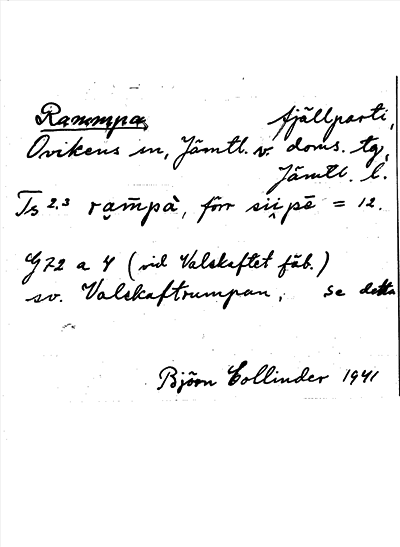 Rammpa, fjällparti,
Ovikens sn, Jämtl. v. doms. tg,
Jämtl. l.
Ts 2.3 ra̮m̄pὰ, förr sii̮pē = 12.
G72 a 4 (vid Valskaftet fäb.)
sv. Valskaftrumpan, se detta
Björn Collinder 1941